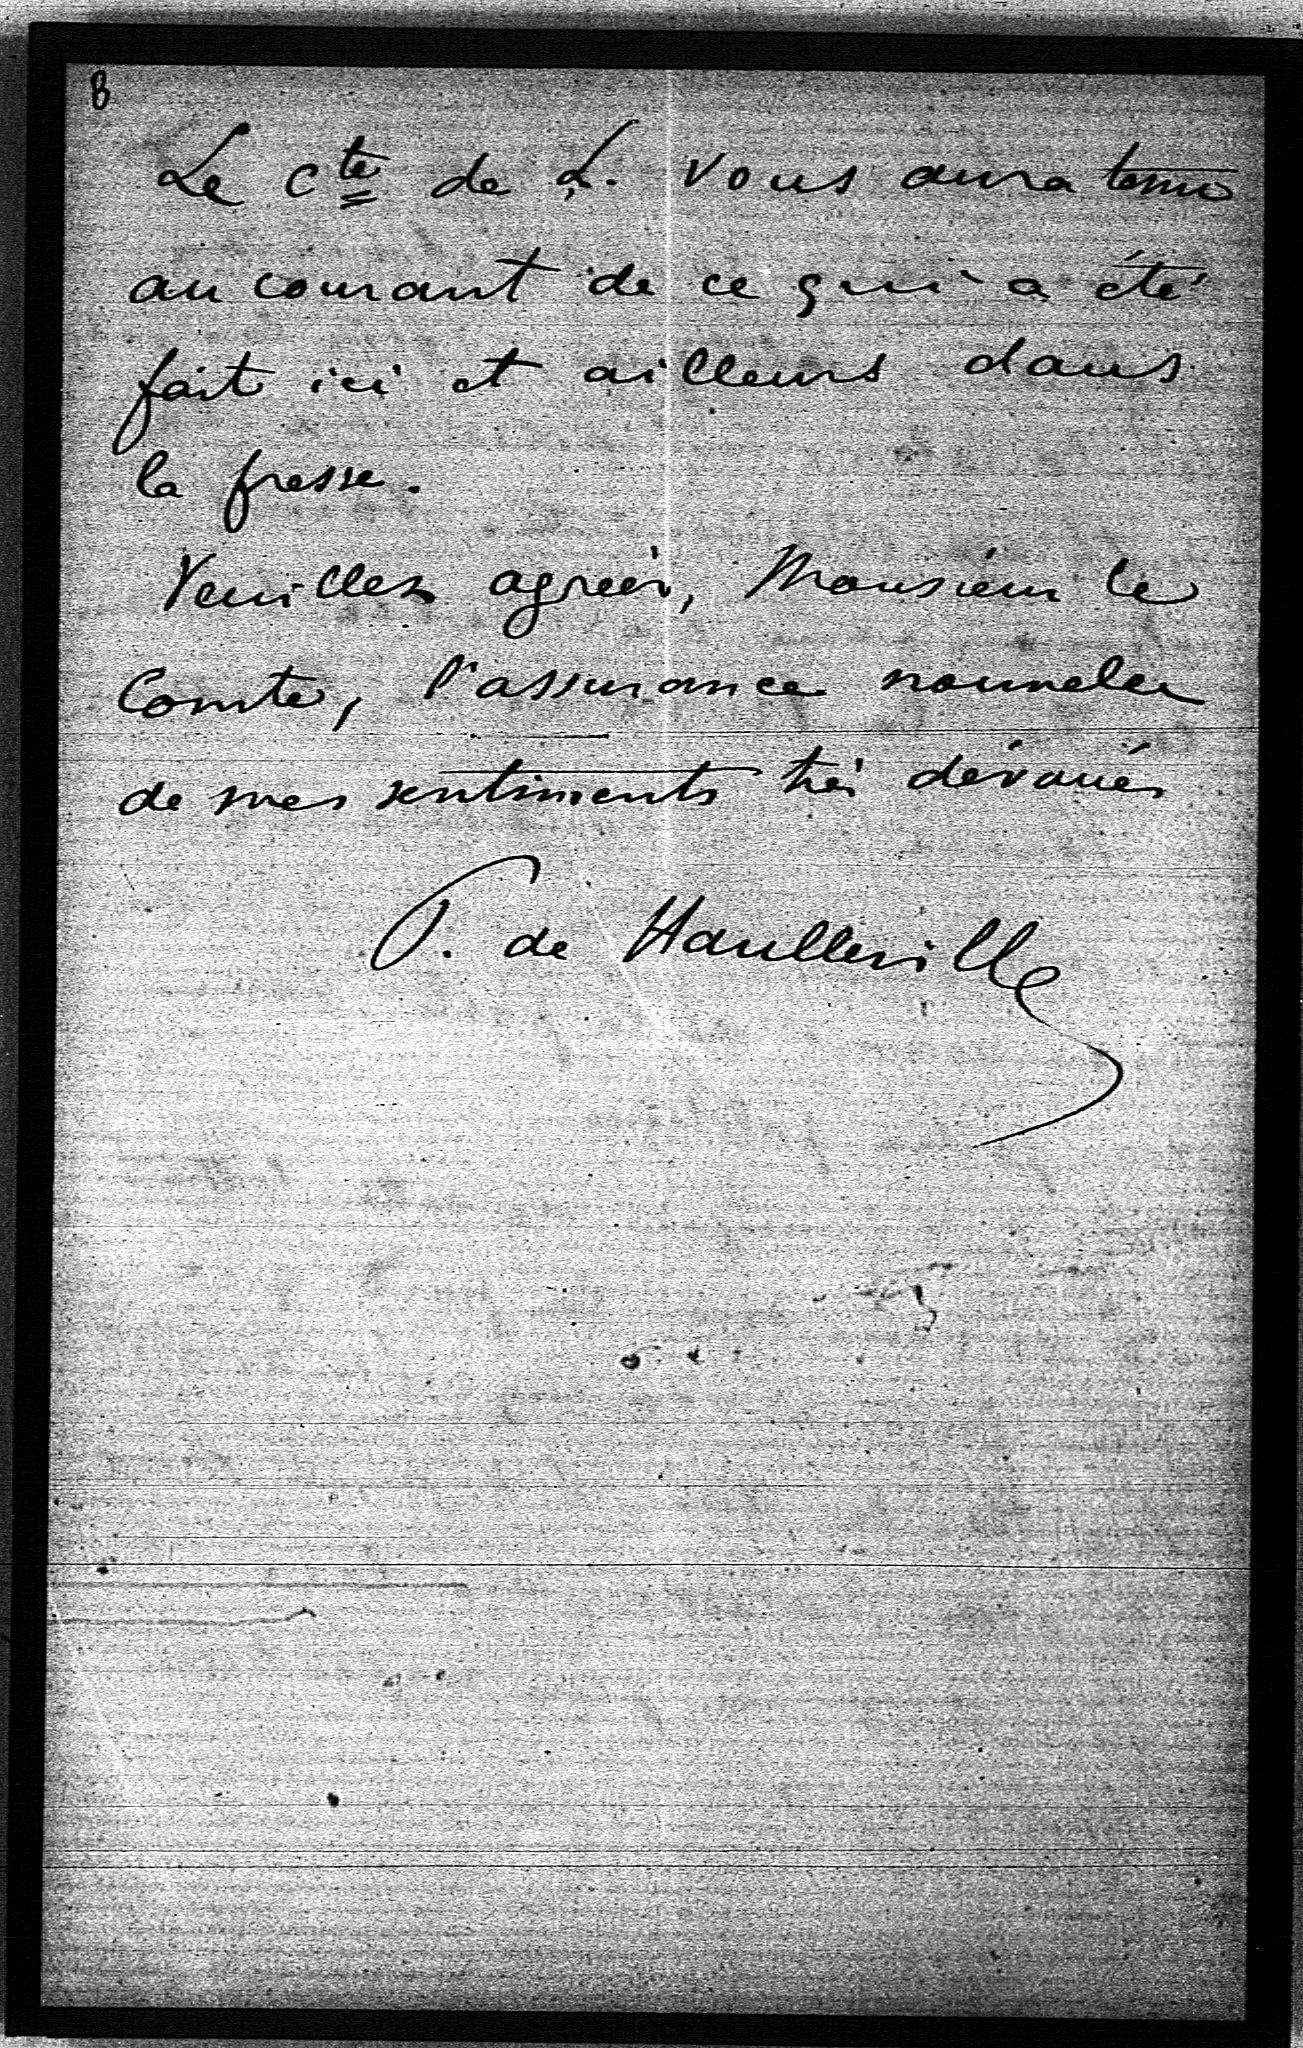 8
Le Cte de L. vous aura tenu
au courant de ce qui a été
fait ici et ailleurs dans
la presse.
Veuillez agréer, Monsieur le
Comte, l'assurance nouvelle
de mes sentiments très dévoués
P. de Haulleville